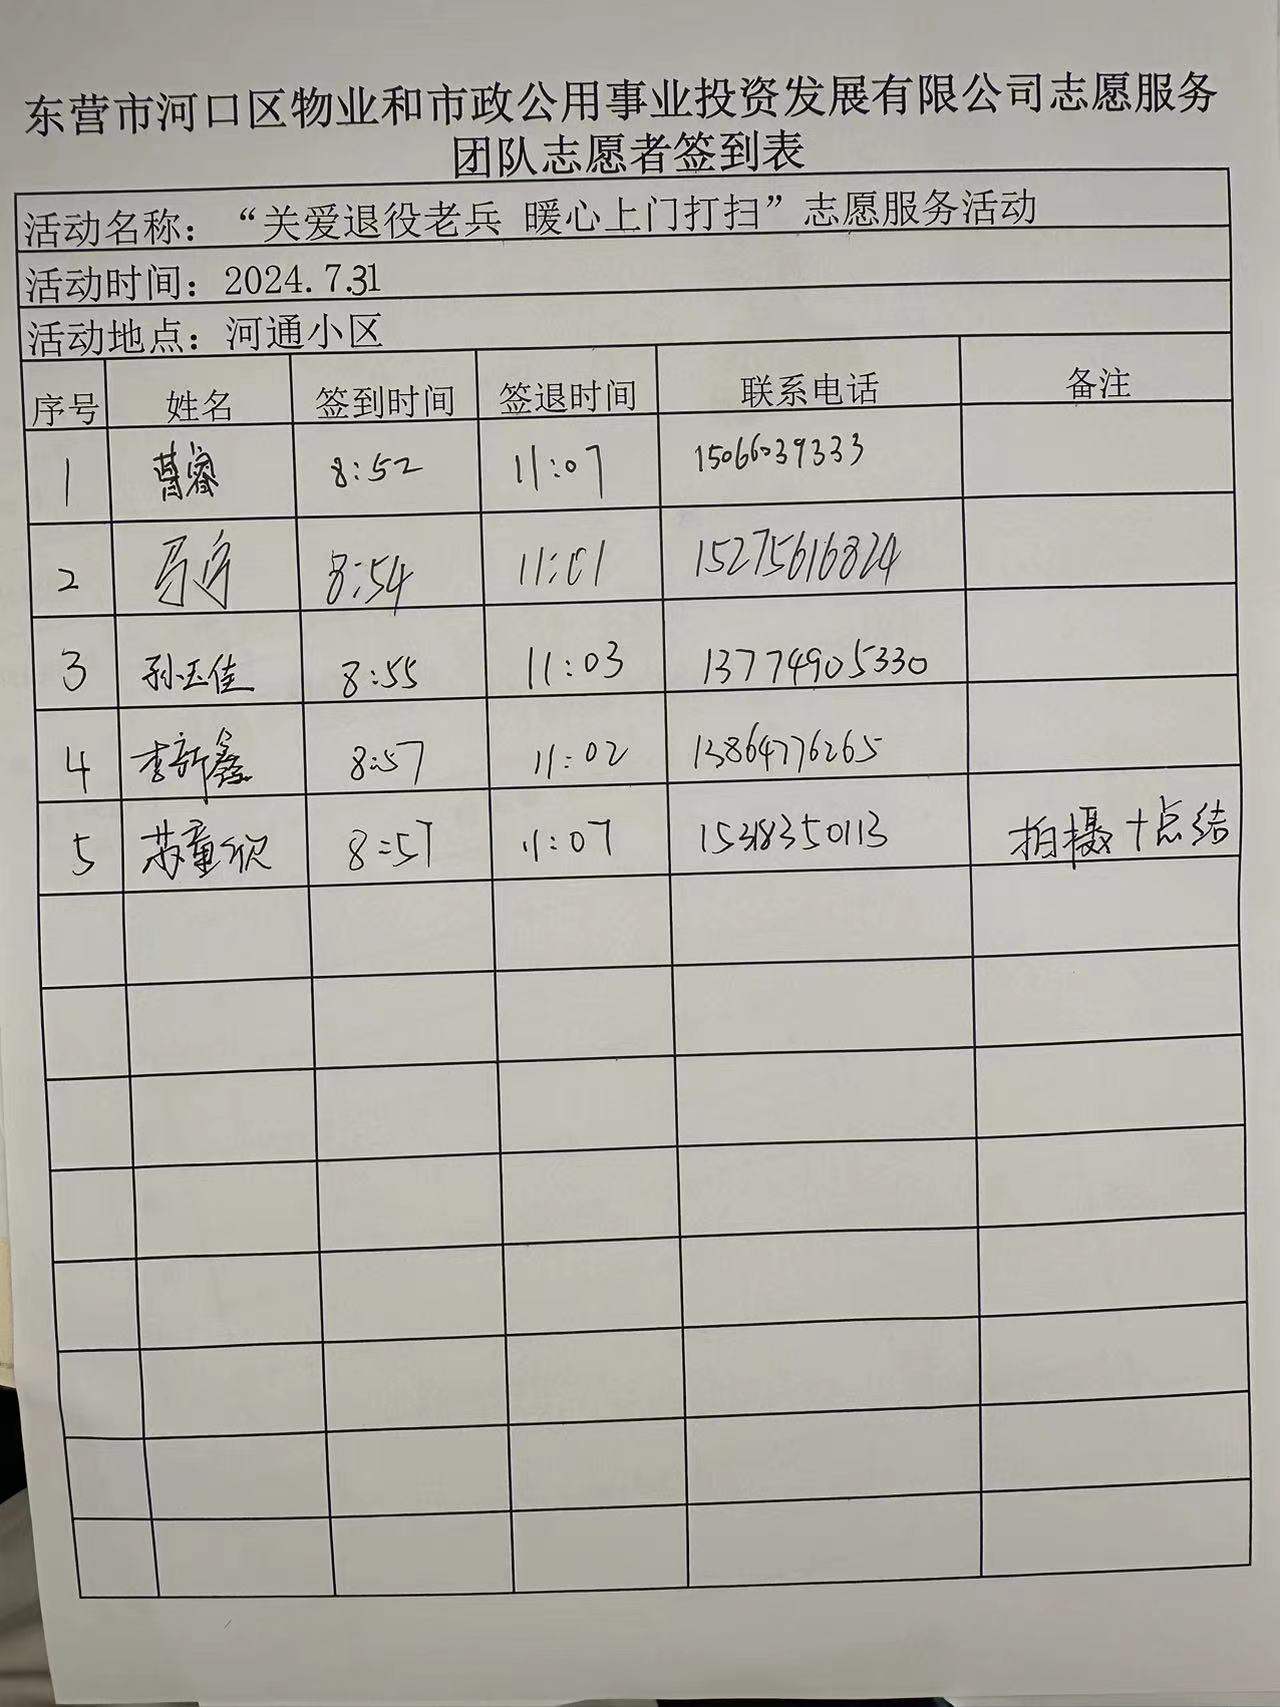 东营市河口区物业和市政公用事业投资发展有限公司志愿服务
团队志愿者签到表
活动名称：“关爱退役老兵 暖心上门打扫”志愿服务活动
活动时间：2024.7.31
活动地点：河通小区
序号 姓名 签到时间 签退时间 联系电话 备注
1 曹睿 8:52 11:07 15066039333
2 8:54 11:01 15275616824
3 孙玉佳 8:55 11:03 13774905330
4 李新鑫 8:57 11:02 13864776265
5 苏童欣 8:57 11:07 15318350113 拍摄+点结